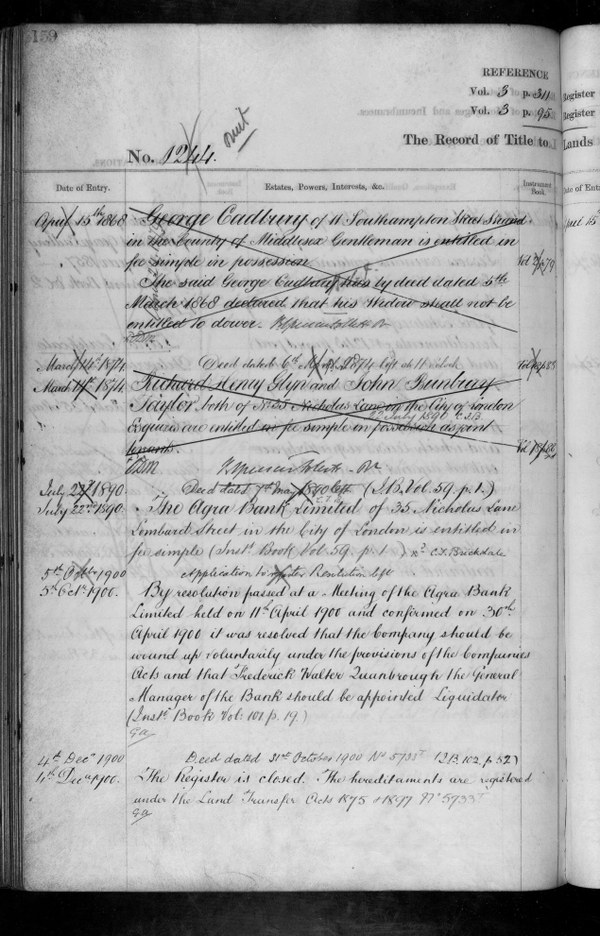 139
REFERENCE
Vol. 3 p. 311 Register
Vol. 3 p. 95 Register
omit
The Record of Title to Lands
No. 1244.
Date of Entry. Estates, Powers, Interests, &c. Instrument Book. Date of Entry
April 15th 1868 George Cadbury of 11 Southampton Street Strand April 15
in the County of Middlesex Gentleman is entitled in
fee simple in possession Vol 2 p 79
The said George Cadbury has by deed dated 5th
March 1868 declared that his Widow shall not be
entitled to dower.
March 14th 1874 Deed dated 6th 1874 left at 11 o'clock
March 14th 1874 Richard Henry Glyn and John Bunbury
Taylor both of No 35 Nicholas Lane in the City of London
July 1890
Esquires are entitled in fee simple in possession as joint
tenants.
July 22d 1890 Deed dated 7th May 1890 left (I.B. Vol. 59. p. 1.)
July 22nd 1890. The Agra Bank Limited of 35 Nicholas Lane
Lombard Street in the City of London is entitled in
fee simple (Inst. Book Vol. 59. p. 1.) C.F. Brickdale
5th Octr 1900 Application to register Resolution left
5th Octr 1900. By resolution passed at a Meeting of the Agra Bank
Limited held on 11th April 1900 and confirmed on 30th
April 1900 it was resolved that the Company should be
wound up voluntarily under the provisions of the Companies
Acts and that Frederick Walter Quarrbrough the General
Manager of the Bank should be appointed Liquidator
(Inst. Book Vol: 101 p. 19.)
4th Decr 1900 Deed dated 31st October 1900 No 5733 (I.B. 102. p. 52)
4th Decr 1900. The Register is closed. The hereditaments are registered
under the Land Transfer Acts 1875 & 1897 No 5733